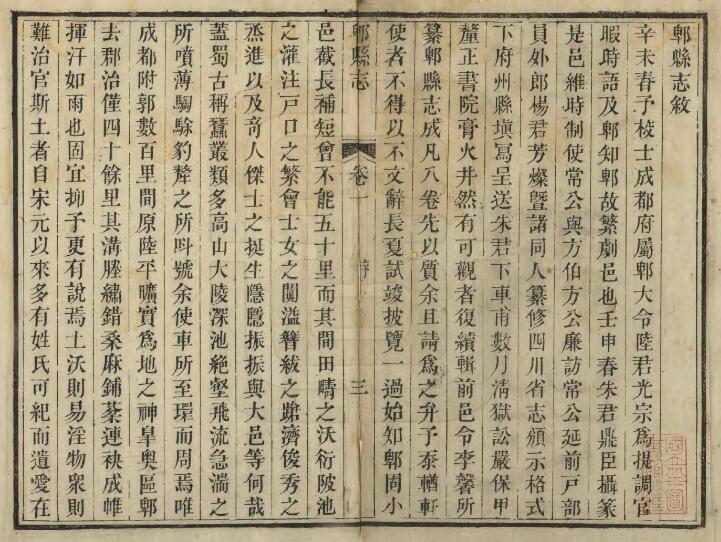 郫縣志敘
辛未春予校士成都府屬郫大令陸君光宗為提調官
暇時語及郫知郫故繁劇邑也壬申春朱君鼎臣攝篆
是邑維時制使常公與方伯方公廉訪常公延前戶部
員外郎楊君芳燦暨諸同人纂修四川省志頒示格式
下府州縣填寫呈送朱君下車甫數月淸獄訟嚴保甲
釐正書院膏火井然有可觀者復續輯前邑令李馨所
纂郫縣志成凡八卷先以質余且請爲之弁予忝輶軒
使者不得以不文辭長夏試竣披覽一過始知郫固小
郫縣志 卷一 序 三
邑截長補短會不能五十里而其間田疇之沃衍陂池
之灌注戸口之繁會士女之闐溢簪紱之蹌濟俊秀之
烝進以及奇人傑士之挺生隱隱振振與大邑等何哉
蓋蜀古稱蠶叢類多高山大陵深池絶壑飛流急湍之
所噴薄騶駼豹犛之所呌號余使車所至環而周焉唯
成都附郭數百里間原陸平曠實爲地之神臯奧區郫
去郡治僅四十餘里其溝塍繡錯桑麻鋪棻連袂成帷
揮汗如雨也固宜抑予更有說焉土沃則易淫物衆則
難治官斯土者自宋元以來多有姓氏可紀而遺愛在